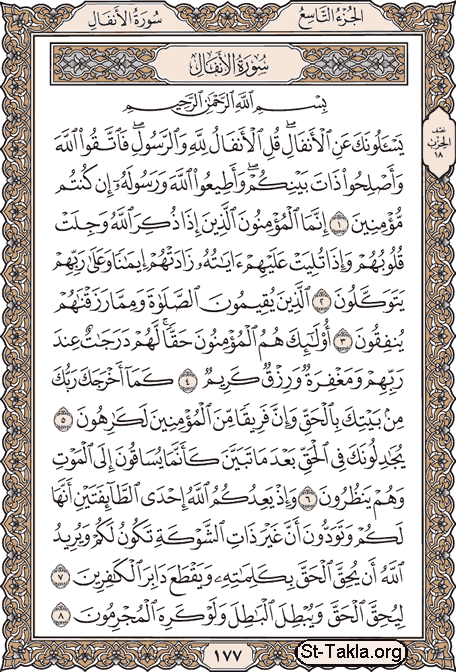 سُورَةُ الأَنفَالِ
الجُزْءُ التَّاسِعُ
سُورَةُ الأَنفَالِ
بِسْمِ اللَّهِ الرَّحْمَٰنِ الرَّحِيمِ
نصف
الحزب
١٨
يَسْـَٔلُونَكَ عَنِ ٱلْأَنفَالِۖ قُلِ ٱلْأَنفَالُ لِلَّهِ وَٱلرَّسُولِۖ فَٱتَّقُوا۟ ٱللَّهَ
وَأَصْلِحُوا۟ ذَاتَ بَيْنِكُمْۖ وَأَطِيعُوا۟ ٱللَّهَ وَرَسُولَهُۥٓ إِن كُنتُم
مُّؤْمِنِينَ ١ إِنَّمَا ٱلْمُؤْمِنُونَ ٱلَّذِينَ إِذَا ذُكِرَ ٱللَّهُ وَجِلَتْ
قُلُوبُهُمْ وَإِذَا تُلِيَتْ عَلَيْهِمْ ءَايَٰتُهُۥ زَادَتْهُمْ إِيمَٰنًا وَعَلَىٰ رَبِّهِمْ
يَتَوَكَّلُونَ ٢ ٱلَّذِينَ يُقِيمُونَ ٱلصَّلَوٰةَ وَمِمَّا رَزَقْنَٰهُمْ
يُنفِقُونَ ٣ أُو۟لَٰٓئِكَ هُمُ ٱلْمُؤْمِنُونَ حَقًّاۚ لَّهُمْ دَرَجَٰتٌ عِندَ
رَبِّهِمْ وَمَغْفِرَةٌ وَرِزْقٌ كَرِيمٌ ٤ كَمَآ أَخْرَجَكَ رَبُّكَ
مِنۢ بَيْتِكَ بِٱلْحَقِّ وَإِنَّ فَرِيقًا مِّنَ ٱلْمُؤْمِنِينَ لَكَٰرِهُونَ ٥
يُجَٰدِلُونَكَ فِى ٱلْحَقِّ بَعْدَ مَا تَبَيَّنَ كَأَنَّمَا يُسَاقُونَ إِلَى ٱلْمَوْتِ
وَهُمْ يَنظُرُونَ ٦ وَإِذْ يَعِدُكُمُ ٱللَّهُ إِحْدَى ٱلطَّآئِفَتَيْنِ أَنَّهَا
لَكُمْ وَتَوَدُّونَ أَنَّ غَيْرَ ذَاتِ ٱلشَّوْكَةِ تَكُونُ لَكُمْ وَيُرِيدُ
ٱللَّهُ أَن يُحِقَّ ٱلْحَقَّ بِكَلِمَٰتِهِۦ وَيَقْطَعَ دَابِرَ ٱلْكَٰفِرِينَ ٧
لِيُحِقَّ ٱلْحَقَّ وَيُبْطِلَ ٱلْبَٰطِلَ وَلَوْ كَرِهَ ٱلْمُجْرِمُونَ ٨
١٧٧
St-Takla.org